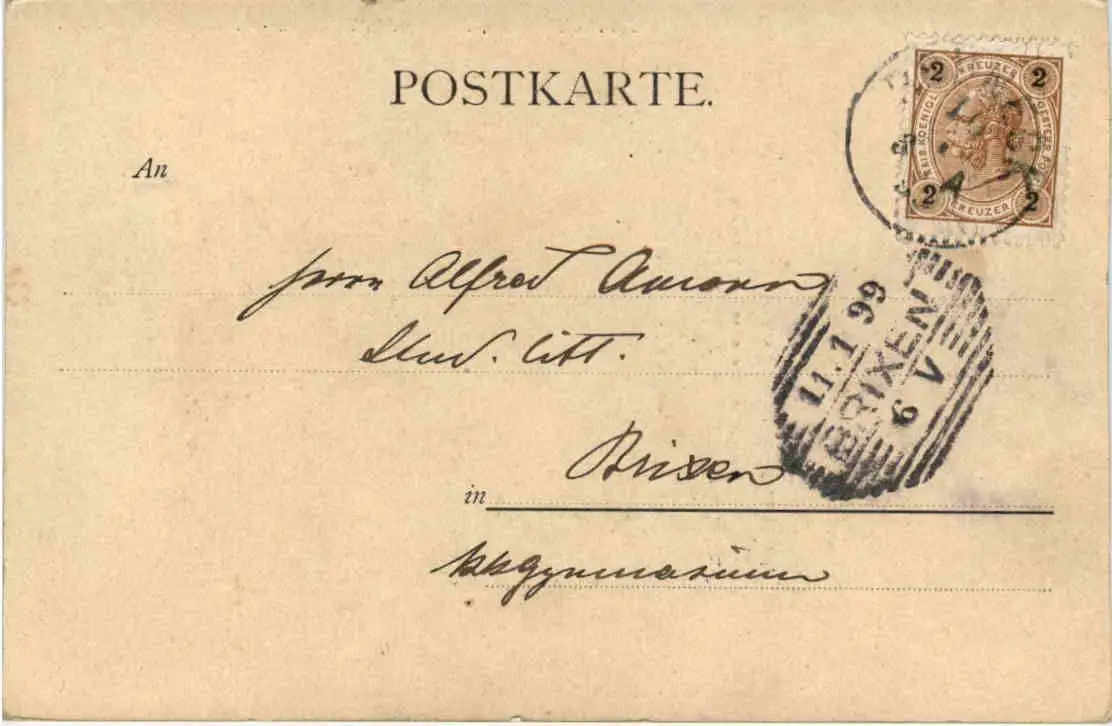 POSTKARTE.
2 KREUZER 2
KAIS. KOENIGL. OESTERR. POST
2 KREUZER 2
An
Herrn Alfred Amonn
Stud. litt.
11.1 99
BRIXEN
6 V
Brixen
in
kkGymnasium